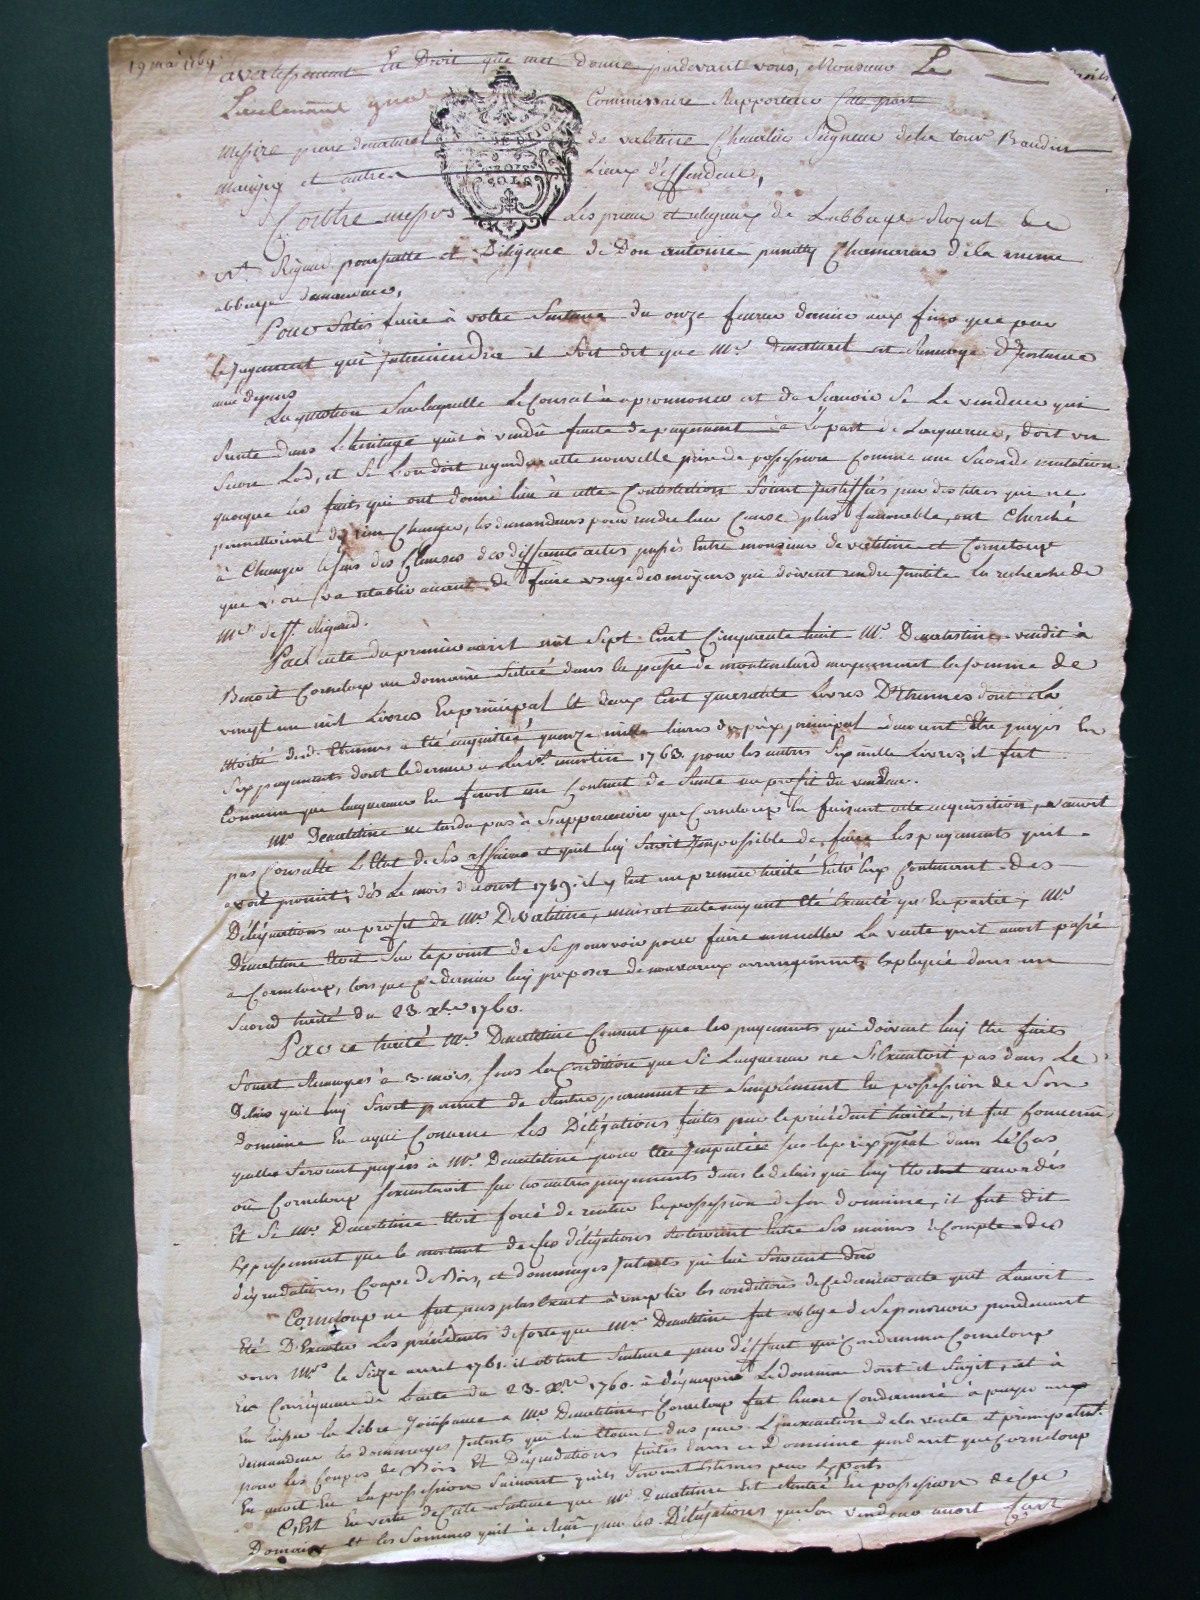 19 mai 1764
avertissement En Droit que met donne pardevant vous, Monsieur Le
Lieutenant Commissaire Rapporteur
messire de valetine Chevalier Seigneur de la tour Baudin
et autres Lieux deffendeur,
Contre messrs Les prieur et religieux de Labbaye Royal de
St Rigaud poursuitte et Diligence de Don antoine Chamarier de la meme
abbaye demandeurs,
Pour satis faire à votre Sentence du onze fevrier dernier aux fins que par
le Jugement qui Interviendra il soit dit que Mr est Renvoyé d'Instance
avec depens
La question Sur laquelle Le Conseil à a prononcer est de Scavoir Si Le vendeur qui
Rentre dans L'heritage quil à vendu faute de payement à La part de Lacquereur, doit un
Lod, et Si L'on doit regarder cette nouvelle prise de possession Comme une Seconde mutation
quoique les faits qui ont donné lieu à cette Contestation Soient Justiffiés par des titres qui ne
permettoient de rien Changer, les demandeurs pour rendre leur Cause plus favorable, ont Cherché
à Changer le sens des Clauses des differents actes passés Entre monsieur de valetine et Corneloup
que l'on va etablir avant de faire usage des moyens qui doivent rendre Inutile la recherche de
Mrs de St. Rigaud.
Par acte du premier avril mil Sept Cent Cinquante huit Mr Devaletine vendit à
Benoit Corneloup un domaine Situé dans la paroisse de moyennant la somme de
vingt un mil Livres En principal Et deux Cent quarante Livres D'Etrennes dont la
moitié desd. Etrennes a Eté acquittée quinze mille livres du prix principal devoient Etre payés En
Six payements dont le dernier a la St martin 1763. pour les autres Six mille Livres, il fut
Convenu que lacquereur En feroit un Contract de Rente au profit du vendeur.
Mr Devaletine ne tarda pas à S'appercevoir que Corneloup En faisant cette acquisition, n'avoit
pas Consulté L'Etat de Ses affaires et quil luy Seroit Impossible de faire les payements quil
avoit promis; dès Le mois d'aoust 1759. il y Eut un premier traité Entre Eux Contenant des
Délégations au profit de Mr Devaletine, mais cet acte nayant Eté Executé qu'En partie; Mr
Devaletine Etoit Sur le point de Se pourvoir pour faire annuller La vente quil avoit passé
a Corneloup, lors que ce dernier luy proposa de nouveaux arrangements Expliqués dans un
Second traité du 23. xbre 1760.
Par ce traité Mr Devaletine Consent que les payements qui doivent luy Etre faits
Soient Renvoyés à 3. mois, Sous la Condition que Si Lacquereur ne S'Executoit pas dans Le
Delais quil luy Seroit permit de Rentrer purement et Simplement En possession de Son
domaine En ce qui Concerne Les Délégations faites par le précédent traité, il fut Convenu
quelles Seroient payées à Mr Devaletine pour Etre Imputées Sur le prix dans Le Cas
où Corneloup Sexecuteroit Sur les autres payements dans le delais qui luy Etoient accordés
Et Si Mr Devaletine Etoit forcé de rentrer En possession de Son domaine, il fut dit
Expressement que le montant de Ces délégations Resteroient Entre Ses mains à Compte des
dégradations, Coupe de Bois, et dommages Interets qui lui Seroient dus
Corneloup ne fut pas plus Exact à remplir les conditions de ce dernier acte quil Lavoit
Eté D'Executer Les précédents de sorte que Mr Devaletine fut obligé de Se pourvoir pardevant
vous Mrs le Seize avril 1761. il obtint Sentence par déffaut qui Condamna Corneloup
En Conséquence de Lacte du 23. Xbre 1760. à déguerpir Le domaine dont il Sagit, et à
En laisser la Libre Jouissance a Mr Devaletine, Corneloup fut Encore Condamné à payer au
demandeur les dommages Interets qui lui Etoient dus par L'inexecution de la vente et
pour les Coupes de Bois Et Dégradations faites dans ce Domaine pendant que Corneloup
En avoit Eu La possession Suivant quils Seroient Estimés par Experts
C'Est En vertu de Cette Sentence que Mr Devaletine Est Rentré En possession de Ce
Domaine et les Sommes quil à par les Délégations que Son vendeur avoit